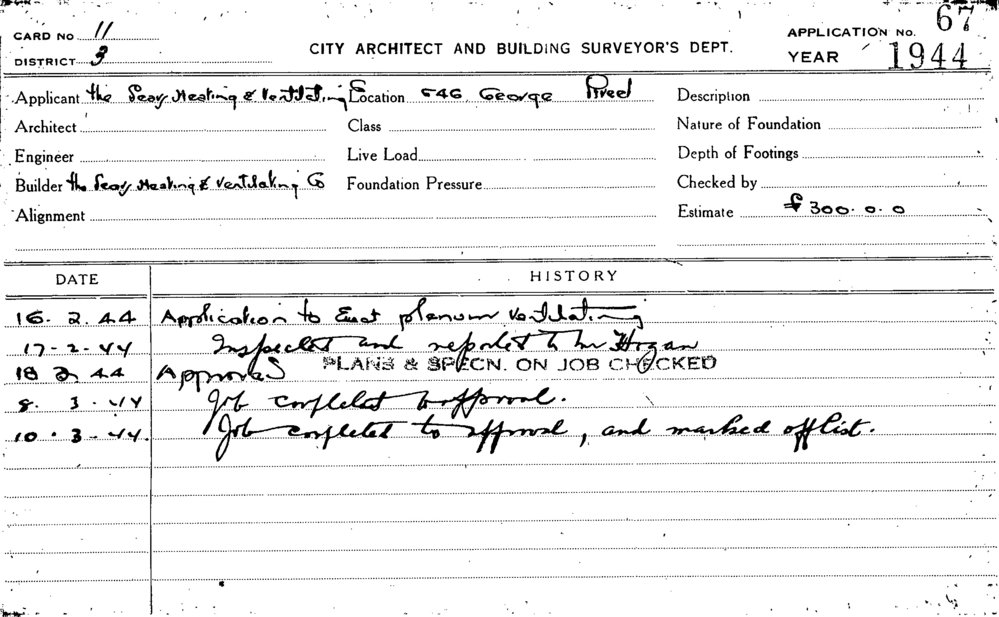 CARD No. 11
DISTRICT 3
CITY ARCHITECT AND BUILDING SURVEYOR'S DEPT.
APPLICATION No. 67
YEAR 1944
Applicant the Heating & Ventilating Location 546 George Street Description
Architect Class Nature of Foundation
Engineer Live Load Depth of Footings
Builder the Heating & Ventilating Co Foundation Pressure Checked by
Alignment Estimate £300.0.0
DATE HISTORY
16. 2. 44 Application to Erect plenum Ventilating
17-2-44 Inspected and reported to Mr Hogan
18 2. 44 Approved PLANS & SPECN. ON JOB CHECKED
8. 3. 44 Job completed to approval.
10. 3-44. Job completed to approval, and marked off list.